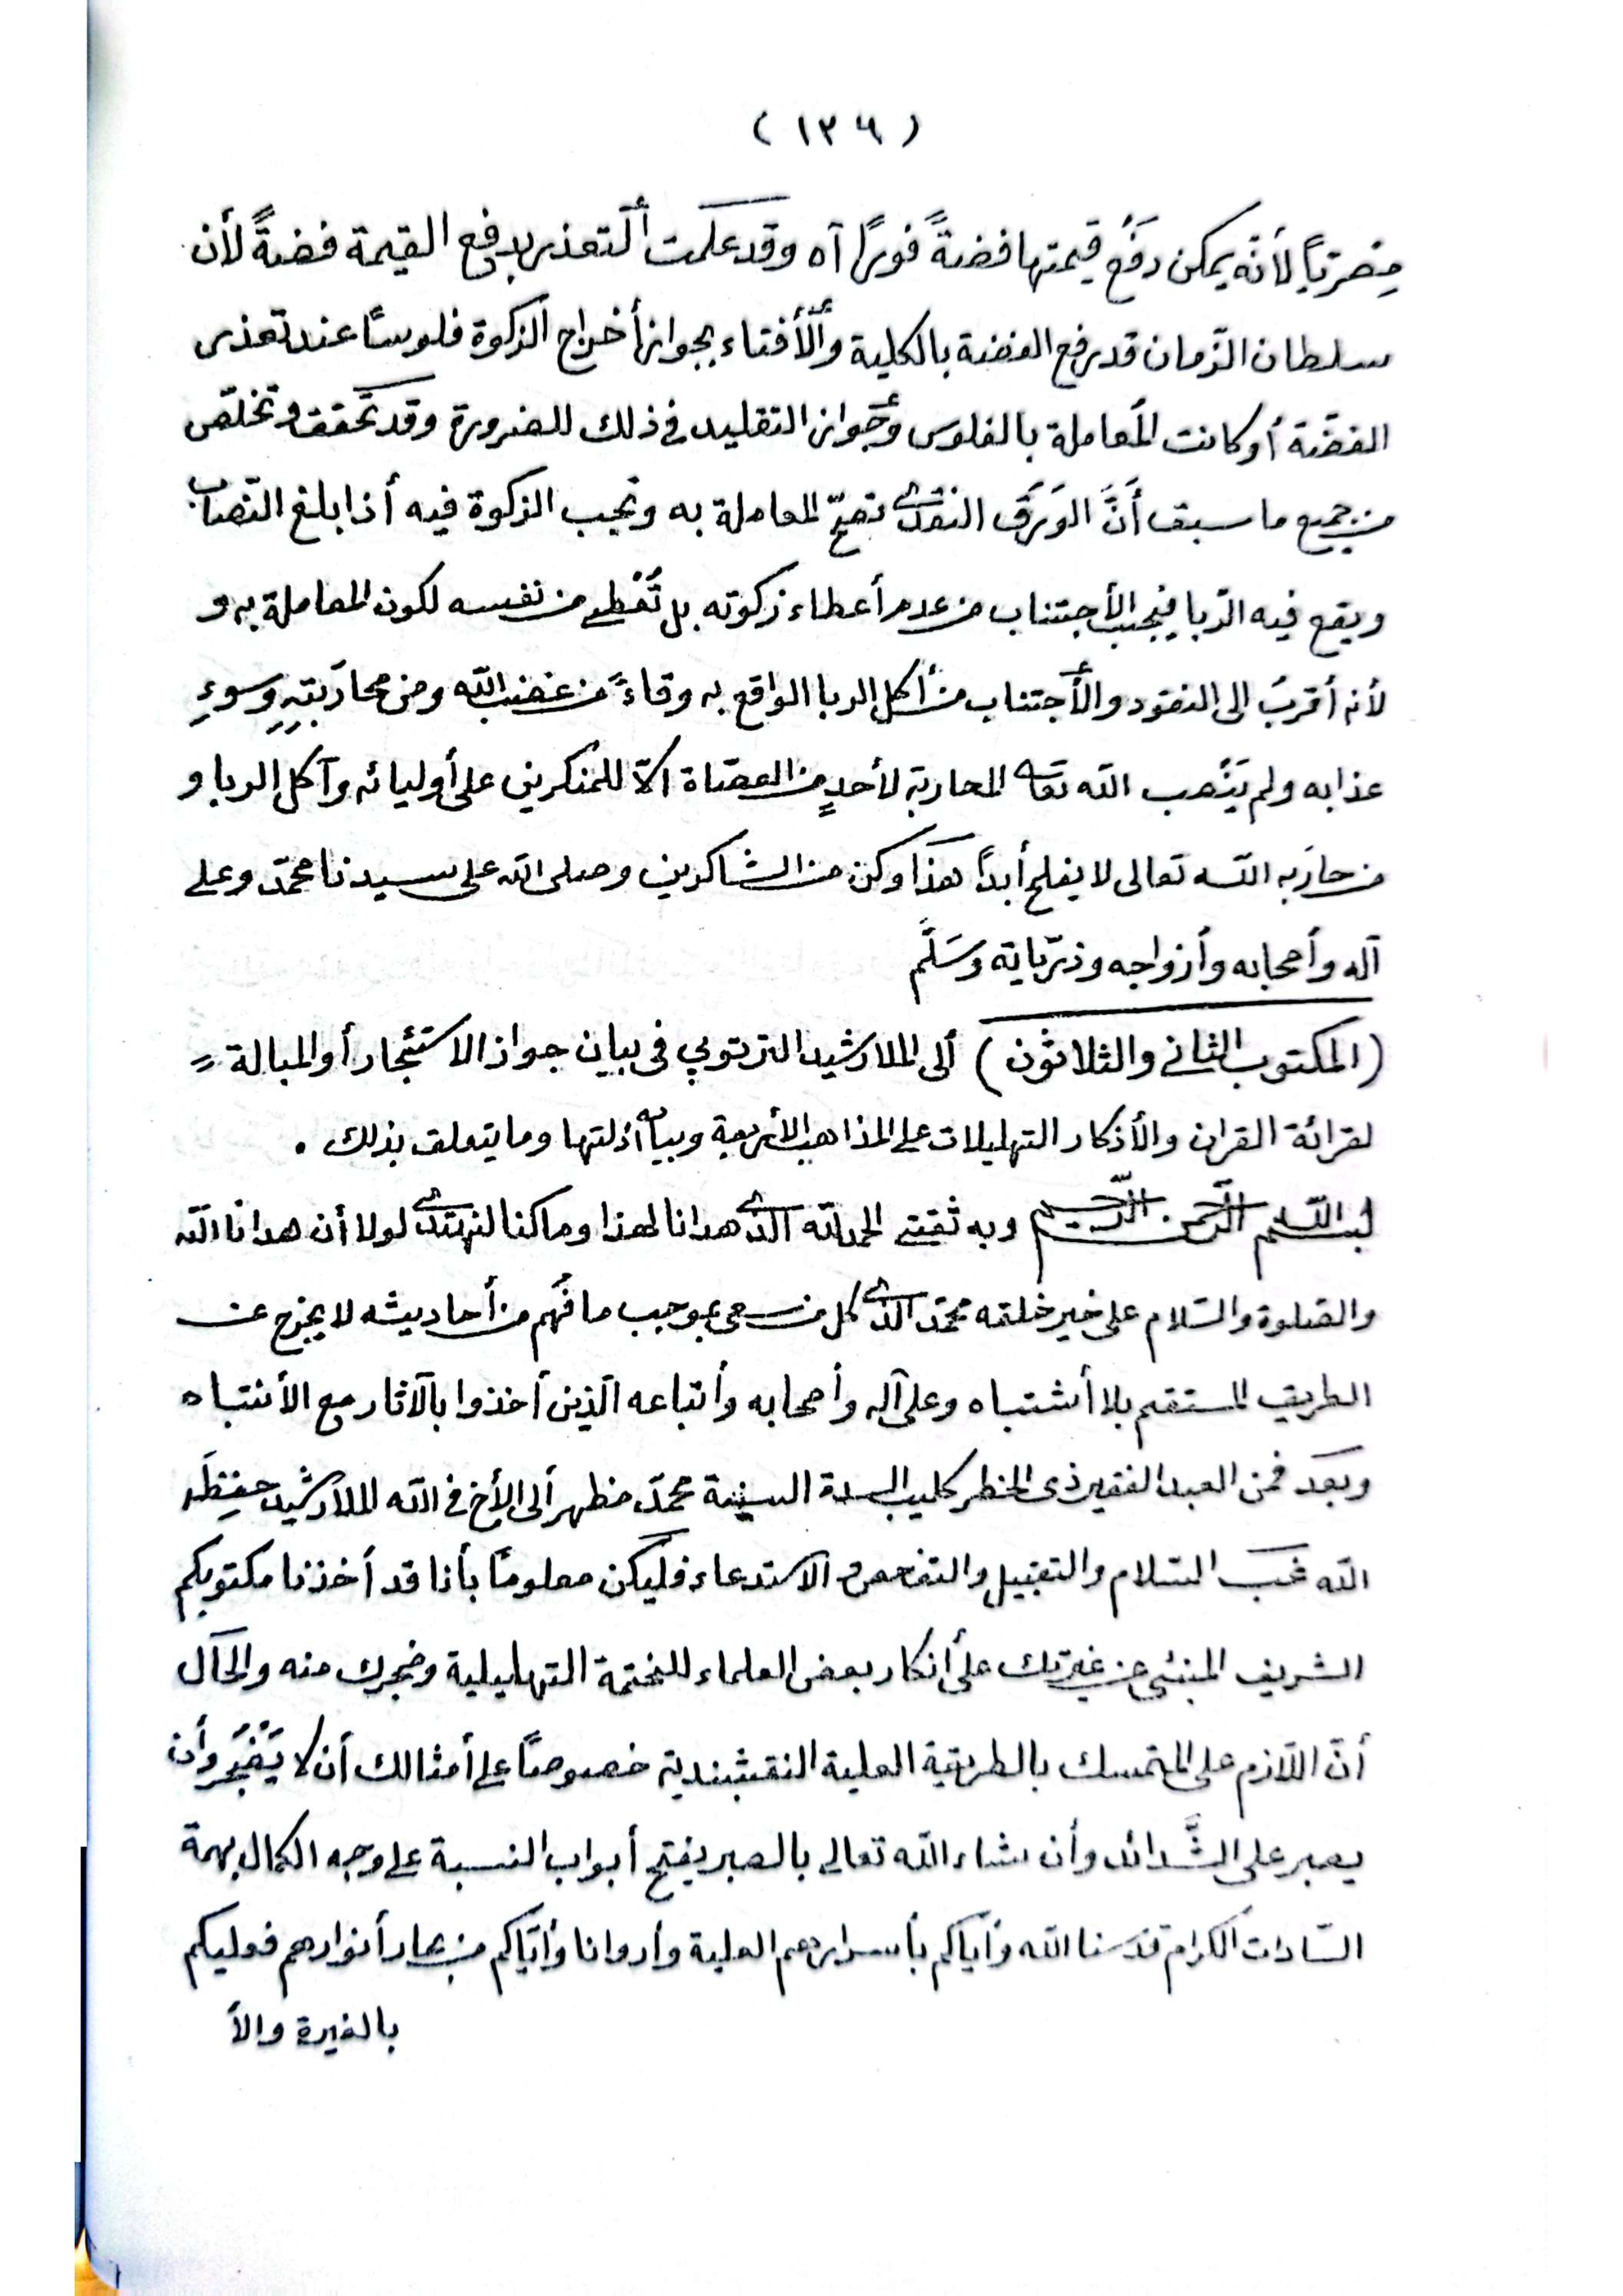 ( ١٣٦ )
مِصْرِيّاً لأنّه يمكن دَفْعُ قيمتها فضةً فوراً آه وقد علمت ألتعذر بدفع القيمة فضةً لأن
سلطان الزّمان قد رفع الفضة بالكلية وألأفتاء بجواز أخراج الزكوة فلوسًا عند تعذر
الفضّة أو كانت المعاملة بالفلوس وجواز التقليد في ذلك للضرورة وقد تحقق وتخلّص
من جميع ما سبق أَنَّ الوَرَقَ النقدى تصحّ المعاملة به وتجب الزكوة فيه أذا بلغ النّصاب
ويقع فيه الرّبا فيجب الأجتناب من عدم أعطاء زكوته بل تُعْطى من نفسه لكون المعاملة به و
لأنه أقربُ الى النقود والأجتناب من أكل الربا الواقع به وقاءً من غضب الله ومن محاربتِهِ وسوءِ
عذابه ولم يَنْصب الله تعا المحاربة لأحدٍ من العصاة الاّ للمنكرين على أوليائه وآكل الربا و
من حارَبه الله تعالى لا يفلح أبداً هذا وكن من الشاكرين وصلى الله على سيدنا محمّد وعلى
آله وأصحابه وأزواجه وذرّياته وسَلَّم
(المكتوب الثانى والثلاثون) ألى الملا رشيد التزتوبي فى بيان جواز الاستئجار أو المبالة =
لقرائة القران والأذكار التهليلات على المذاهب الأربعة وبيان أدلتها وما يتعلق بذلك .
بسم الله الرّحمن الرّحيم وبه ثقتى الحمد لله الذى هدانا لهذا وما كنا لنهتدى لولا أن هدانا الله
والصّلوة والسّلام على خير خلقه محمّد الذى كل من سعى بموجب ما فُهم من أحاديثه لا يخرج عن
الطريق المستقم بلا أشتباه وعلى آله وأصحابه وأتباعه الّذين أخذوا بالآثار مع الأنتباه
وبعد فمن العبد الفقير ذى الخطر كليب السدة السنية محمّد مظهر ألى الأخ فى الله الملا رشيد حفِظَه
الله غب السّلام والتقبيل والتفحص والاستدعاء فليكن معلومًا بأنا قد أخذنا مكتوبكم
الشريف المنبئ عن غيرتك على أنكار بعض العلماء للختمة التهليلية وضجرك منه والحال
أنّ اللّازم على المتمسك بالطريقة العلية النقشبندية خصوصًا على أمثالك أن لا يَضْجَر وأن
يصبر على الشَّدائد وأن شاء الله تعالى بالصبر يفتح أبواب النسبة على وجه الكمال بهمة
السّادات الكرام قدسنا الله وأيّاكم بأسرارهم العلية وأروانا وأيّاكم من بحار أنوارهم فعليكم
بالغيرة والأ